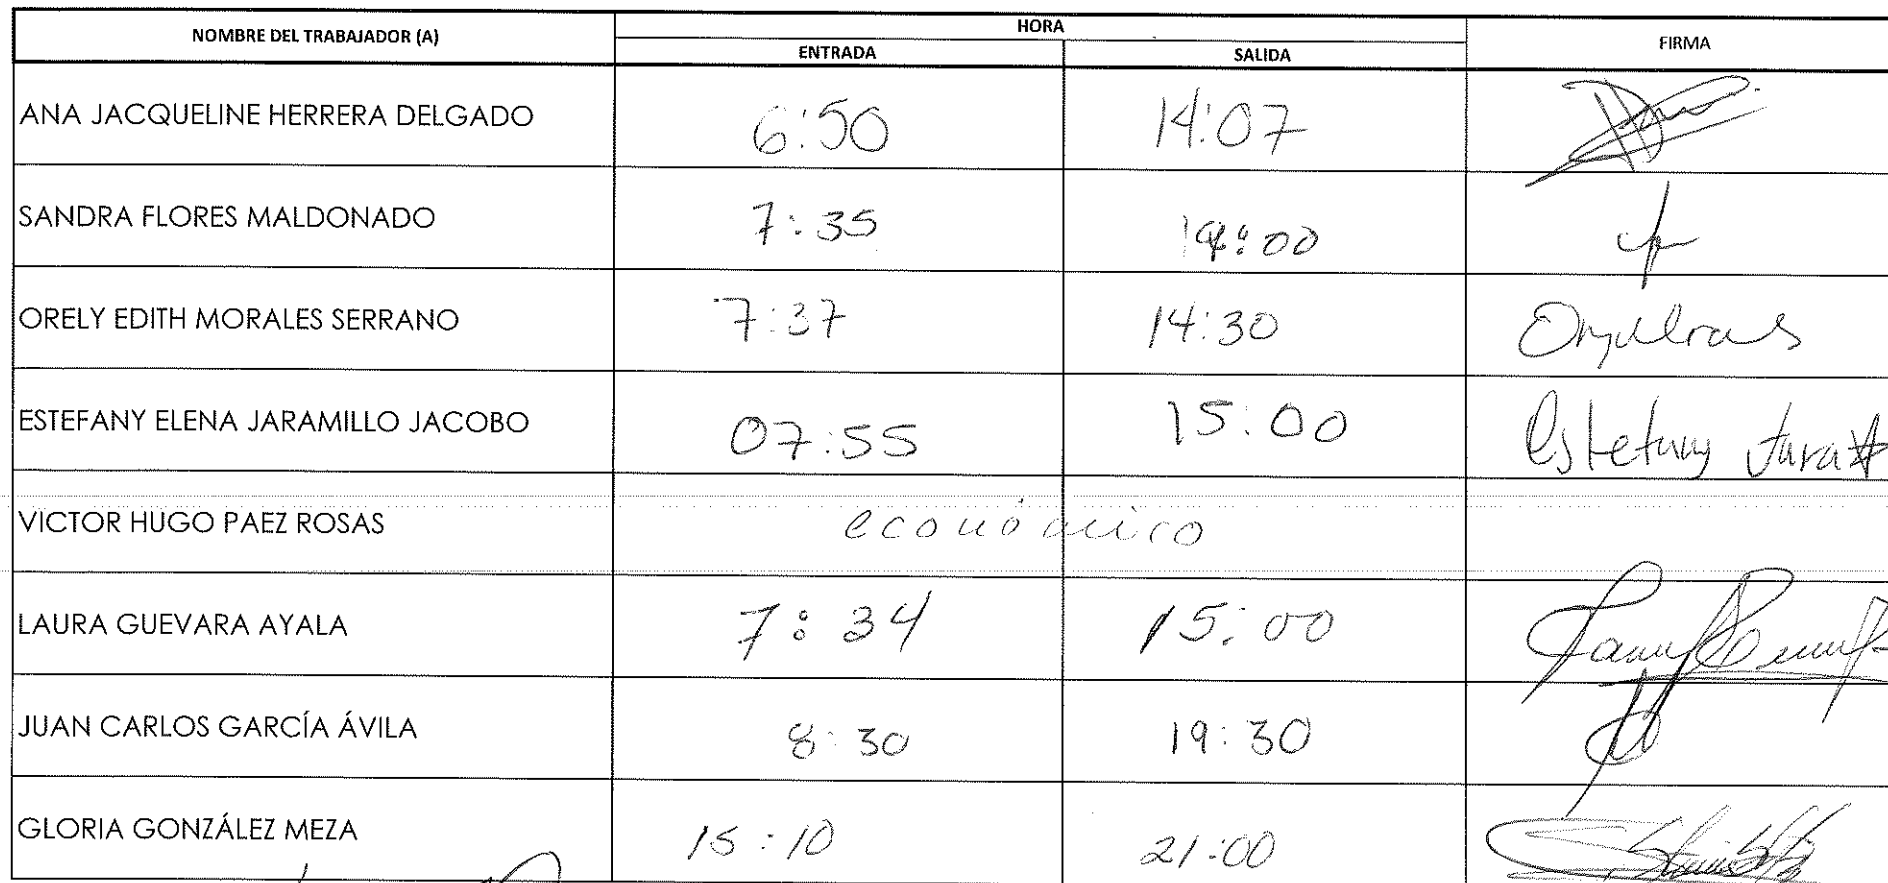 NOMBRE DEL TRABAJADOR (A) HORA FIRMA
ENTRADA SALIDA
ANA JACQUELINE HERRERA DELGADO 6:50 14:07
SANDRA FLORES MALDONADO 7:35
ORELY EDITH MORALES SERRANO 7:37 14:30
ESTEFANY ELENA JARAMILLO JACOBO 07:55 15:00
VICTOR HUGO PAEZ ROSAS económico
LAURA GUEVARA AYALA 7:34 15:00
JUAN CARLOS GARCÍA ÁVILA 8:30 19:30
GLORIA GONZÁLEZ MEZA 15:10 21:00